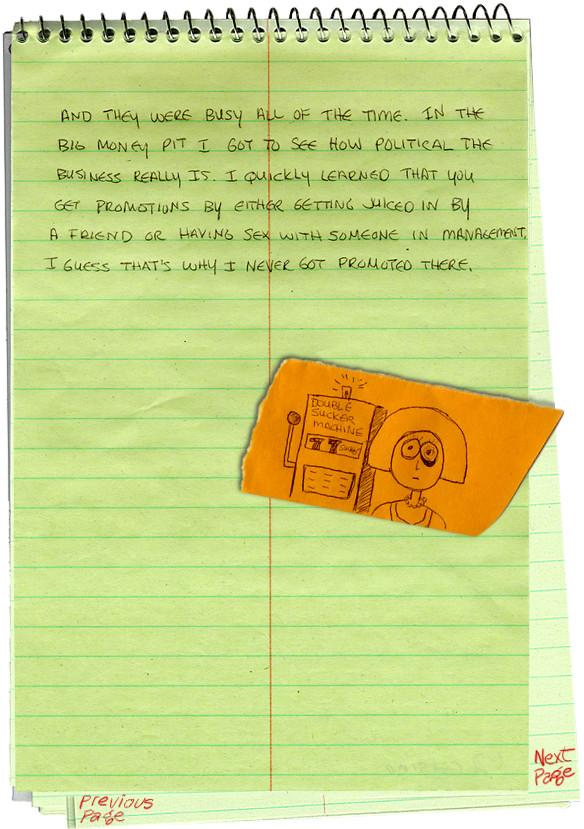 AND THEY WERE BUSY ALL OF THE TIME. IN THE
BIG MONEY PIT I GOT TO SEE HOW POLITICAL THE
BUSINESS REALLY IS. I QUICKLY LEARNED THAT YOU
GET PROMOTIONS BY EITHER GETTING JUICED IN BY
A FRIEND OR HAVING SEX WITH SOMEONE IN MANAGEMENT.
I GUESS THAT'S WHY I NEVER GOT PROMOTED THERE.
DOUBLE
SUCKER
MACHINE
7 7 Sucker
Next
Page
Previous
Page